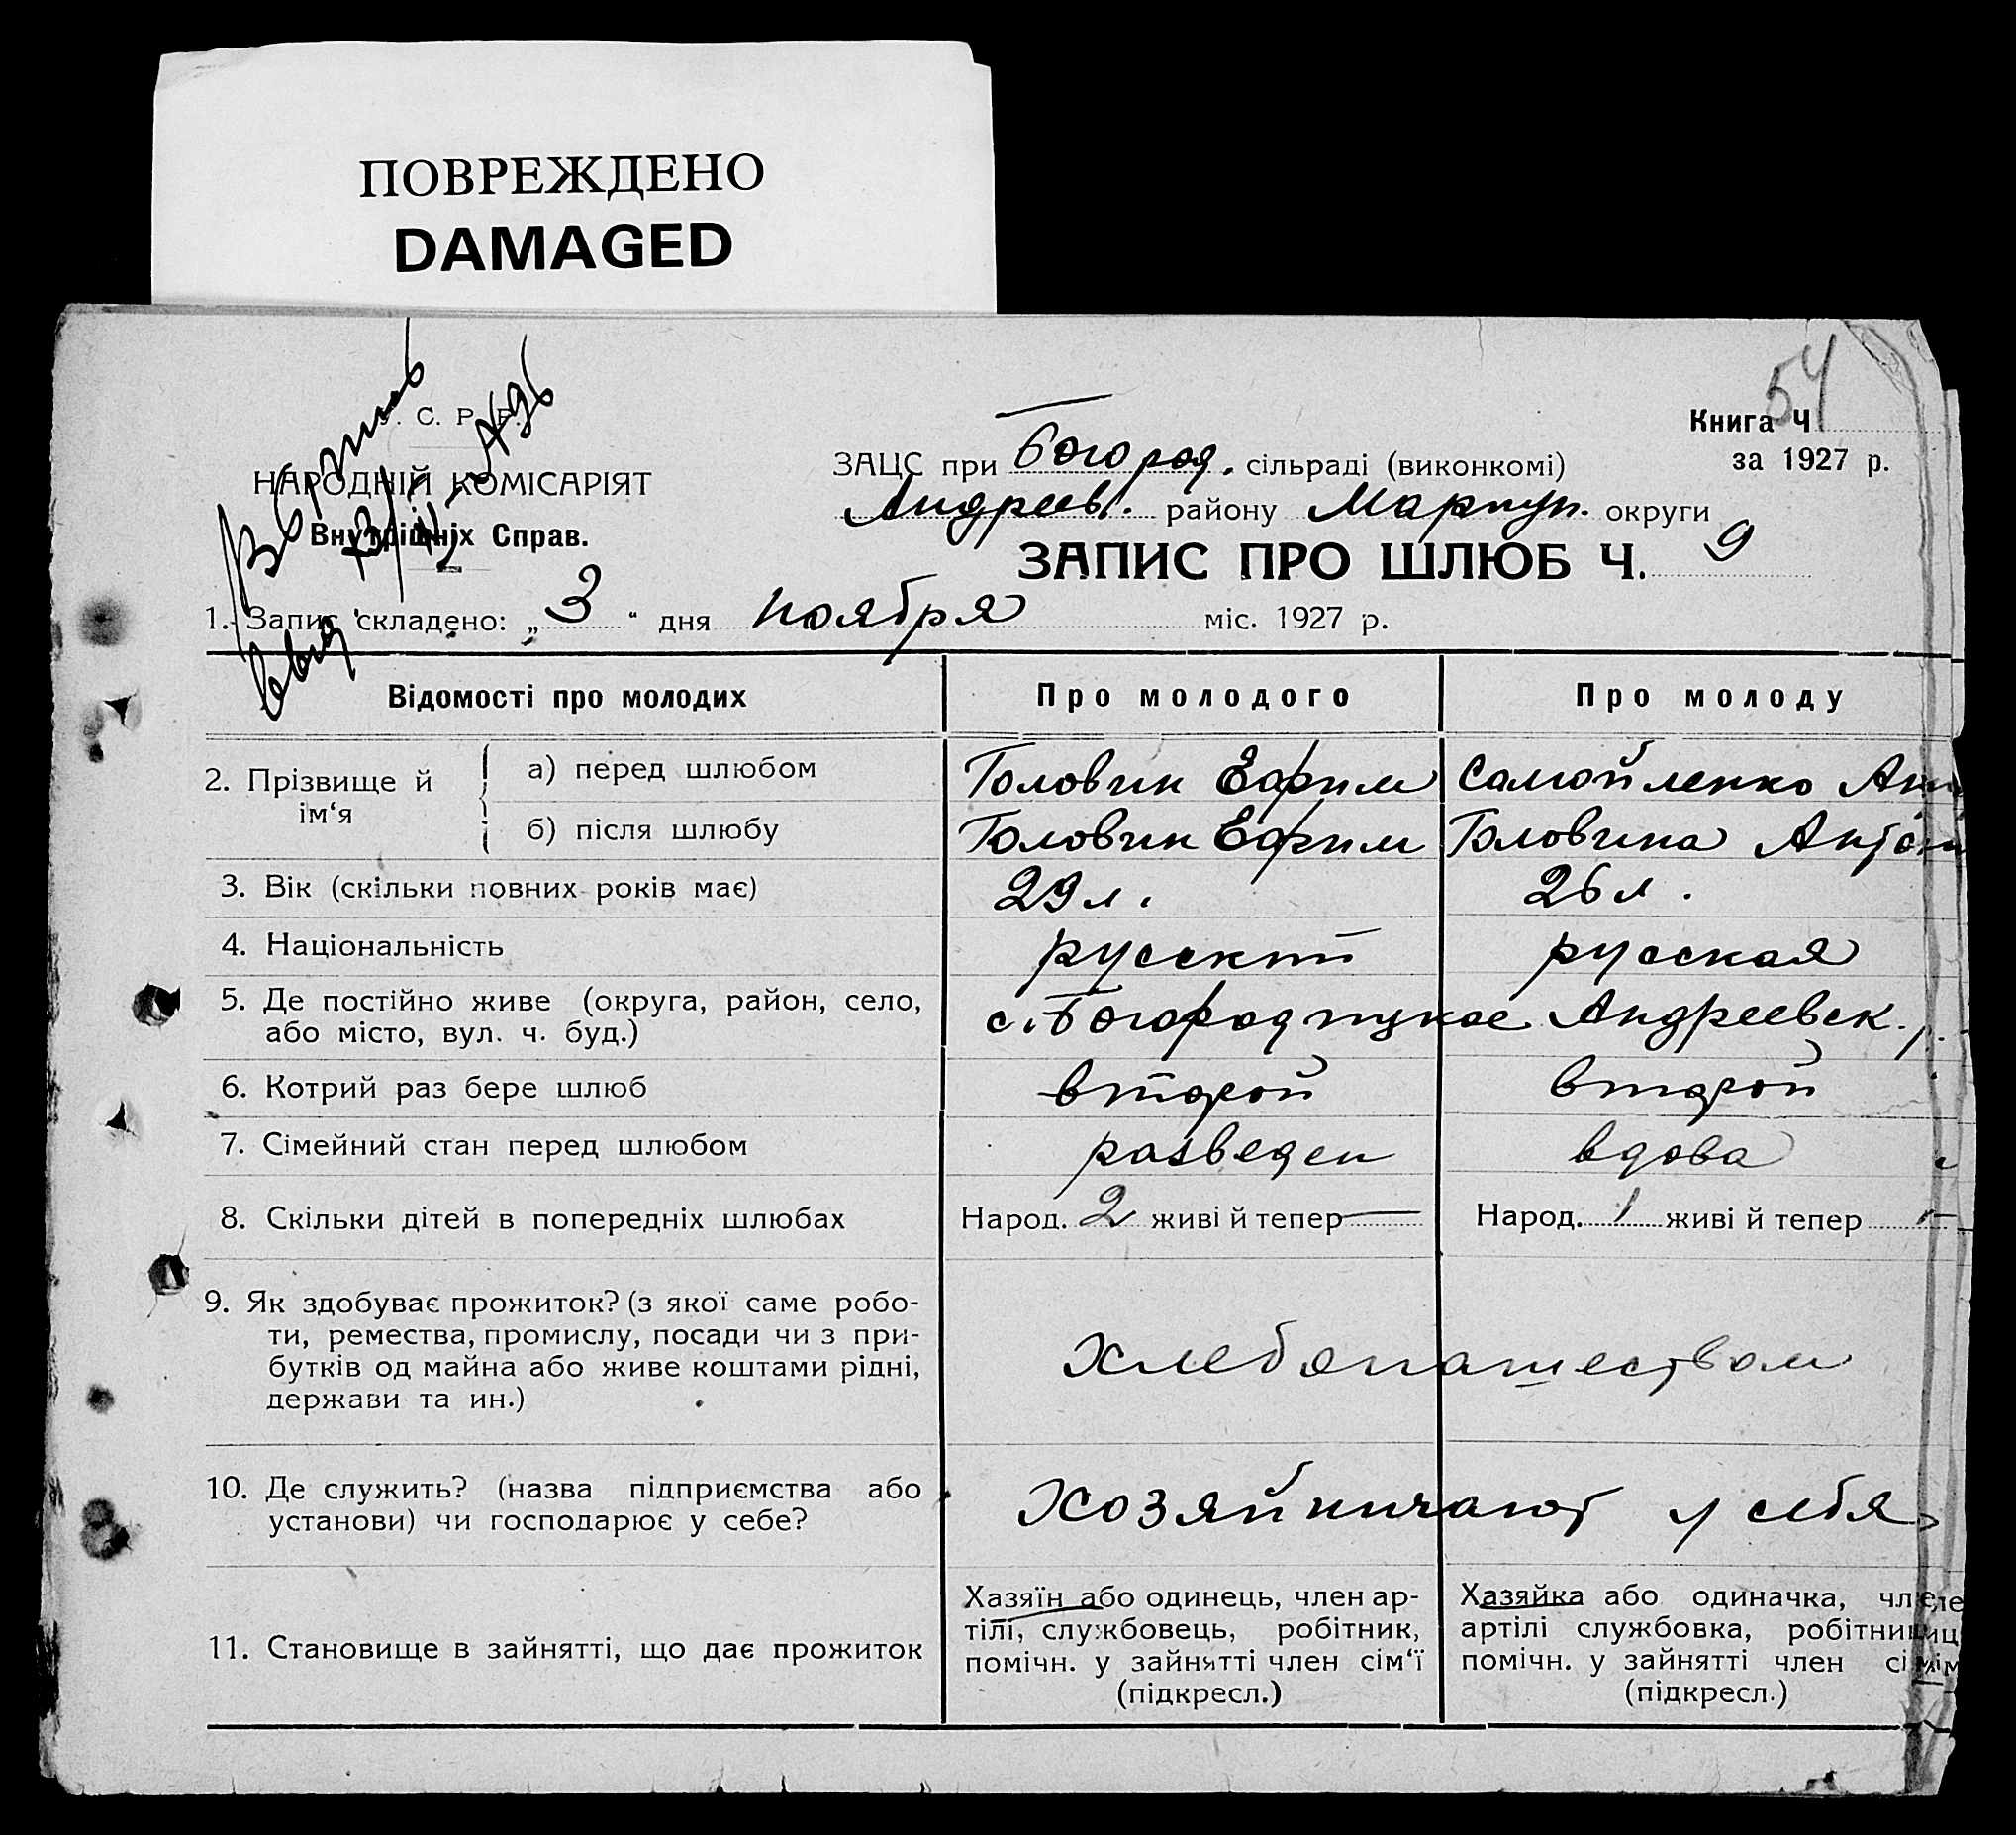 ПОВРЕЖДЕНО
DAMAGED
54
С. Р. Р.
НАРОДНІЙ КОМІСАРІЯТ
Внутрішніх Справ.
Книга Ч
за 1927 р.
ЗАЦС при Богород. сільраді (виконкомі)
Андреев. району Мариуп. округи
ЗАПИС ПРО ШЛЮБ Ч. 9
1. Запис складено: „3“ дня ноября міс. 1927 р.
Відомості про молодих
Про молодого
Про молоду
2. Прізвище й ім‘я
а) перед шлюбом
Головин Ефим
Самойленко
б) після шлюбу
Головин Ефим
Головина Антон
3. Вік (скільки повних років має)
29 л.
26 л.
4. Національність
русский
русская
5. Де постійно живе (округа, район, село,
або місто, вул. ч. буд.)
с. Богородицкое Андреевск. р.
6. Котрий раз бере шлюб
второй
второй
7. Сімейний стан перед шлюбом
разведен
вдова
8. Скільки дітей в попередніх шлюбах
Народ. 2 живі й тепер —
Народ. 1 живі й тепер
9. Як здобуває прожиток? (з якої саме робо-
ти, ремества, промислу, посади чи з при-
бутків од майна або живе коштами рідні,
держави та ин.)
Хлебопашеством
10. Де служить? (назва підприємства або
установи) чи господарює у себе?
Хозяйничают у себя
11. Становище в зайнятті, що дає прожиток
Хазяїн або одинець, член ар-
тілі, службовець, робітник,
помічн. у зайнятті член сім‘ї
(підкресл.)
Хазяйка або одиначка, член
артілі службовка, робітниця
помічн. у зайнятті член сім
(підкресл.)